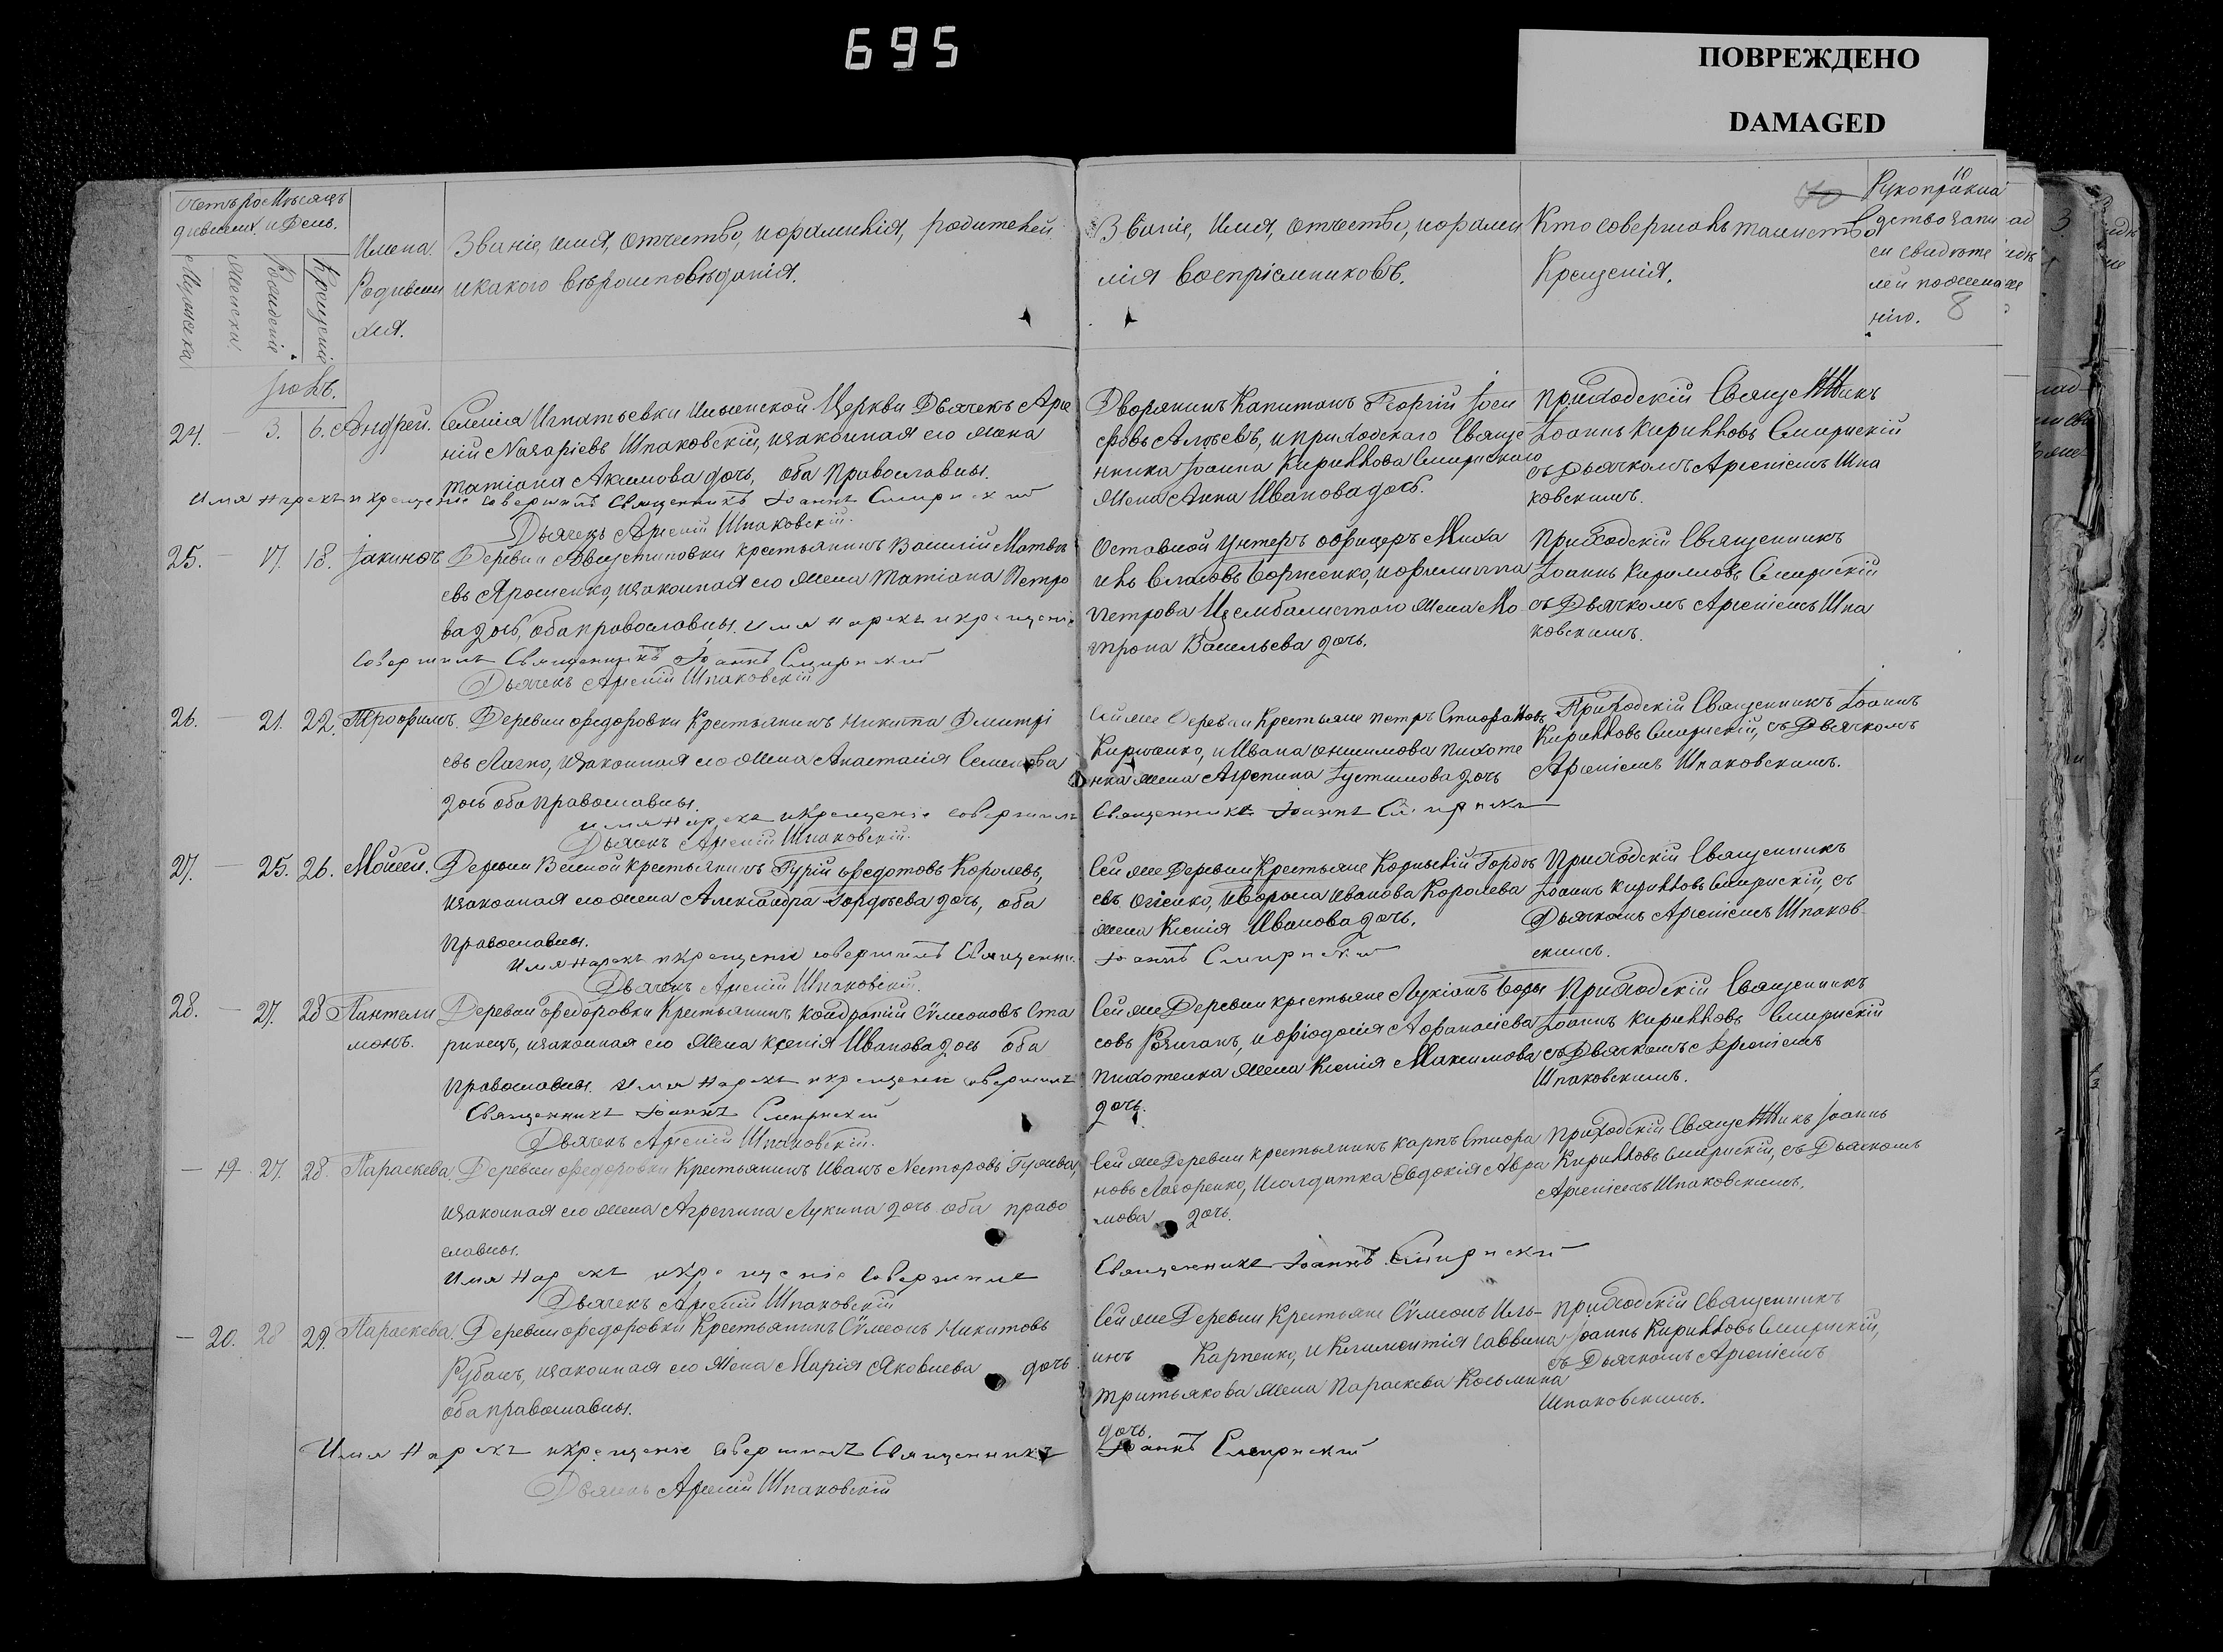 695
ПОВРЕЖДЕНО
DAMAGED
Счетъ ро Мѣсяцъ
дившихся и День.
Мужеска
Женска
Рожденія
Крещенія
Имена
Родивши
хся.
Званіе, имя, отчество, и фамилія, родителей
и какого вѣроисповѣданія.
Званіе, Имя, отчество, и фами
лія воспріемниковъ.
Кто совершалъ таинство
Крещенія.
Рукоприкла
дство запи
си свидѣте
лей по жела
нію.
8
Іюль.
24. — 3. 6. Андрей.
Селенія Игнатьевки Церкви Дьячекъ Арсе
ній Назаріевъ Шпаковскій, и законная его жена
татіана Акимова дочь, оба Православны.
Имя нарекъ и крещеніе совершилъ Священникъ Іоаннъ Смирнскій
Дьячекъ Арсеній Шпаковскій.
Дворянинъ Капитонъ Георгій Іоси
фовъ и приходскаго Свяще
нника Іоанна Кириллова Смирнскаго
жена Анна Иванова дочь.
Приходскій Священникъ
Іоаннъ Кирилловъ Смирнскій
съ Дьячкомъ Арсеніемъ Шпа
ковскимъ.
25. — 17. 18. Іакинфъ
Деревни Августиновки крестьянинъ Василій Матвѣ
евъ Ярошенко, и законная его жена Татіана Петро
ва дочь, оба православны. Имя нарекъ и крещеніе
совершилъ Священникъ Іоаннъ Смирнскій
Дьячекъ Арсеній Шпаковскій
Отставной Унтеръ офицеръ Миха
илъ Власовъ Борисенко, и филиппа
Петрова Цембалистаго жена Мо
трона Васильева дочь.
Приходскій Священникъ
Іоаннъ Кирилловъ Смирнскій
съ Дьячкомъ Арсеніемъ Шпа
ковскимъ.
26. — 21. 22. Трофимъ.
Деревни Федоровки Крестьянинъ Никита Дмитрі
евъ Лагно, и законная его жена Анастасія Семенова
дочь оба православны.
имя нарекъ и крещеніе совершилъ
Дьячекъ Арсеній Шпаковскій.
Сей же Деревни Крестьяне Петръ Стефановъ
Кириченко, и Ивана Онисимова Пихоте
нка жена Агрепина Іустинова дочь
Священникъ Іоаннъ Смирнскій
Приходскій Священникъ Іоаннъ
Кирилловъ Смирнскій, съ Дьячкомъ
Арсеніемъ Шпаковскимъ.
27. — 25. 26. Мойсей.
Деревни Веселой крестьянинъ Гурій Федотовъ Королевъ,
и законная его жена Александра Гордѣева дочь, оба
Православны.
Имя нарекъ и крещеніе совершилъ Священни.
Дьячекъ Арсеній Шпаковскій.
Сей же Деревни Крестьяне Корнилій Гордѣ
евъ Огіенко, и Иванова Королева
жена Ксенія Иванова дочь.
Іоаннъ Смирнскій
Приходскій Священникъ
Іоаннъ Кирилловъ Смирнскій, съ
Дьячкомъ Арсеніемъ Шпаков
скимъ.
28. — 27. 28 Пантели
монъ.
Деревни Федоровки Крестьянинъ Кондратій Сѵмеоновъ Ста
ринецъ, и законная его жена Ксенія Иванова дочь оба
Православны. Имя нарекъ и крещеніе совершилъ
Священникъ Іоаннъ Смирнскій
Дьячекъ Арсеній Шпаковскій.
Сей же Деревни крестьяне Лукіанъ Бори
совъ и Феодосія Афанасіева
Пихотенка жена Ксенія Максимова
дочь.
Приходскій Священникъ
Іоаннъ Кирилловъ Смирнскій
съ Дьячкомъ Арсеніемъ
Шпаковскимъ.
— 19 27. 28. Параскева.
Деревни Федоровки Крестьянинъ Иванъ Несторовъ
и законная его жена Агреппина Лукина дочь оба право
славны.
Имя нарекъ и крещеніе совершилъ
Дьячекъ Арсеній Шпаковскій
Сей же Деревни крестьянинъ Карпъ Стефа
новъ Лазоренко, и солдатка Евдокія Авра
мова дочь.
Священникъ Іоаннъ Смирнскій
Приходскій Священникъ Іоаннъ
Кирилловъ Смирнскій, съ Дьячкомъ
Арсеніемъ Шпаковскимъ.
— 20. 28 29. Параскева.
Деревни Федоровки Крестьянинъ Сѵмеонъ Никитовъ
Рубанъ, и законная его жена Марія Яковлева дочь
оба православны.
Имя нарекъ и крещеніе совершилъ Священникъ
Дьячекъ Арсеній Шпаковскій
Сей же Деревни Крестьяне Сѵмеонъ Иль-
инъ Карпенко, и Климентія Саввина
Третьякова жена Параскева Косьмина
дочь.
Іоаннъ Смирнскій
Приходскій Священникъ
Іоаннъ Кирилловъ Смирнскій,
съ Дьячкомъ Арсеніемъ
Шпаковскимъ.